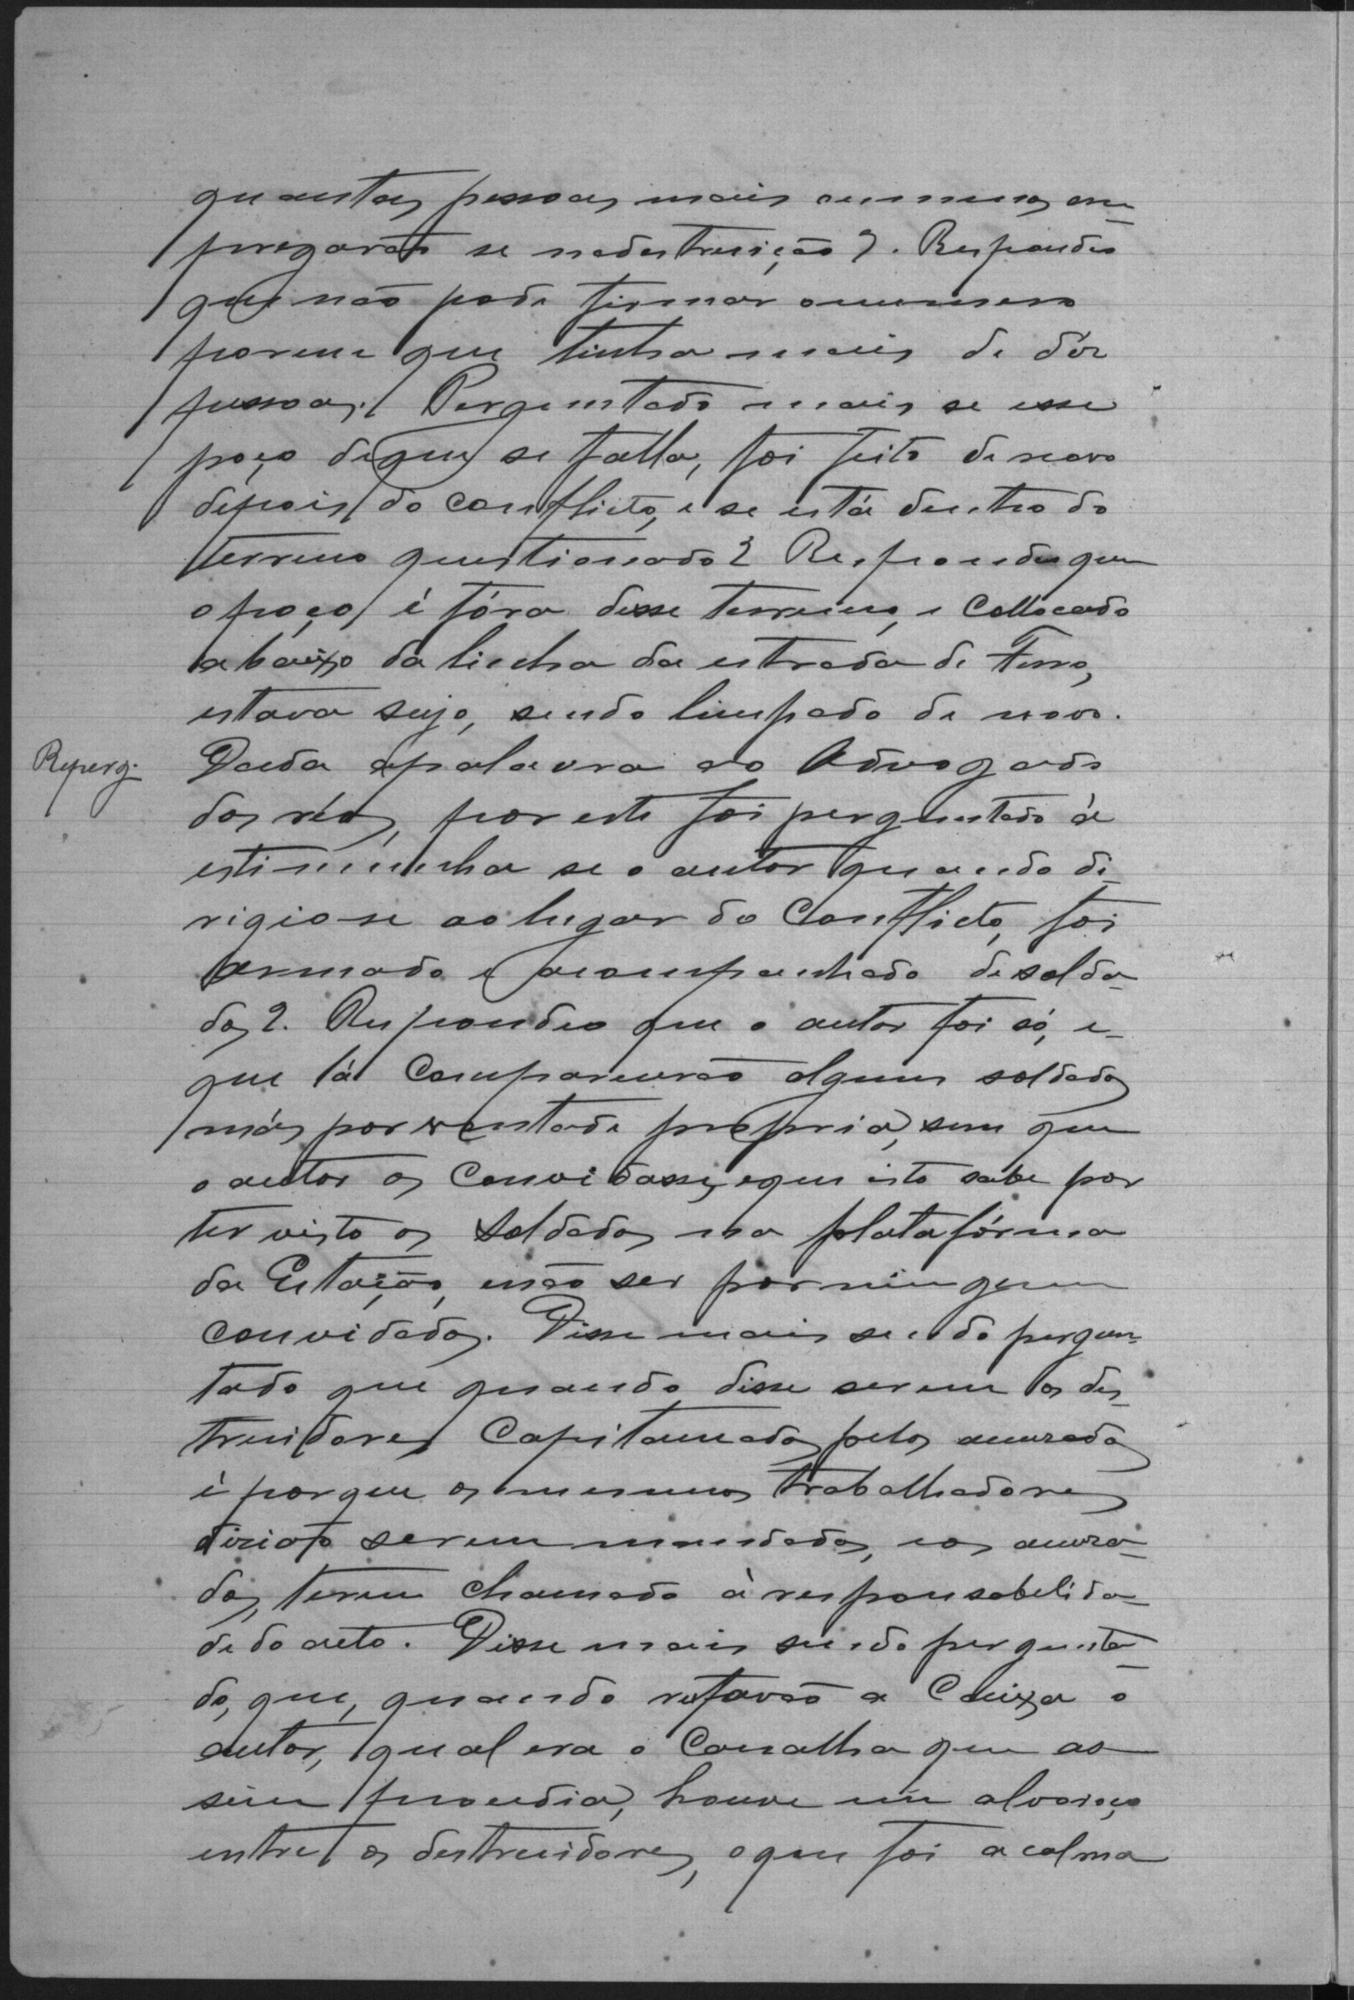 quantas pessoas mais ou menos em-
pregarão se na destruição?. Respondeo
que não pode firmar o numero
porem que tinha mais de déz
pessoas. Perguntado mais se esse
poço de que se falla, foi feito de novo
depois do conflicto, e se está dentro do
terreno questionado? Respondeo que
o poço é fóra desse terreno, e collocado
abaixo da linha da estrada de Ferro,
estava sujo, sendo limpado de novo.
Reperg.
Dada a palavra ao Advogado
dos réos, por este foi perguntado á
estimunha se o autor quando di-
rigio-se ao lugar do Conflicto, foi
armado e acompanhado de solda-
dos?. Respondeo que o autor foi só, e-
que lá comparecerão alguns soldados
más por vontade propria, sem que
o autor os convidasse, e que isto sabe por
ter visto os soldados na platafórma
da Estação, e não ser por ninguem
convidados. Disse mais sendo pergun-
tado que quando disse serem os des-
truidores capitaneados pelos accusados
é porque os mesmos trabalhadores
dizião serem mandados, e os accusa-
dos, terem chamado á responsabelida-
de do acto. Disse mais sendo pergunta-
do, que, quando a Caixa o
autor, qual era o Canalha que as-
sim procedia, houve um alvoroço
entre os destruidores, o que foi acalma